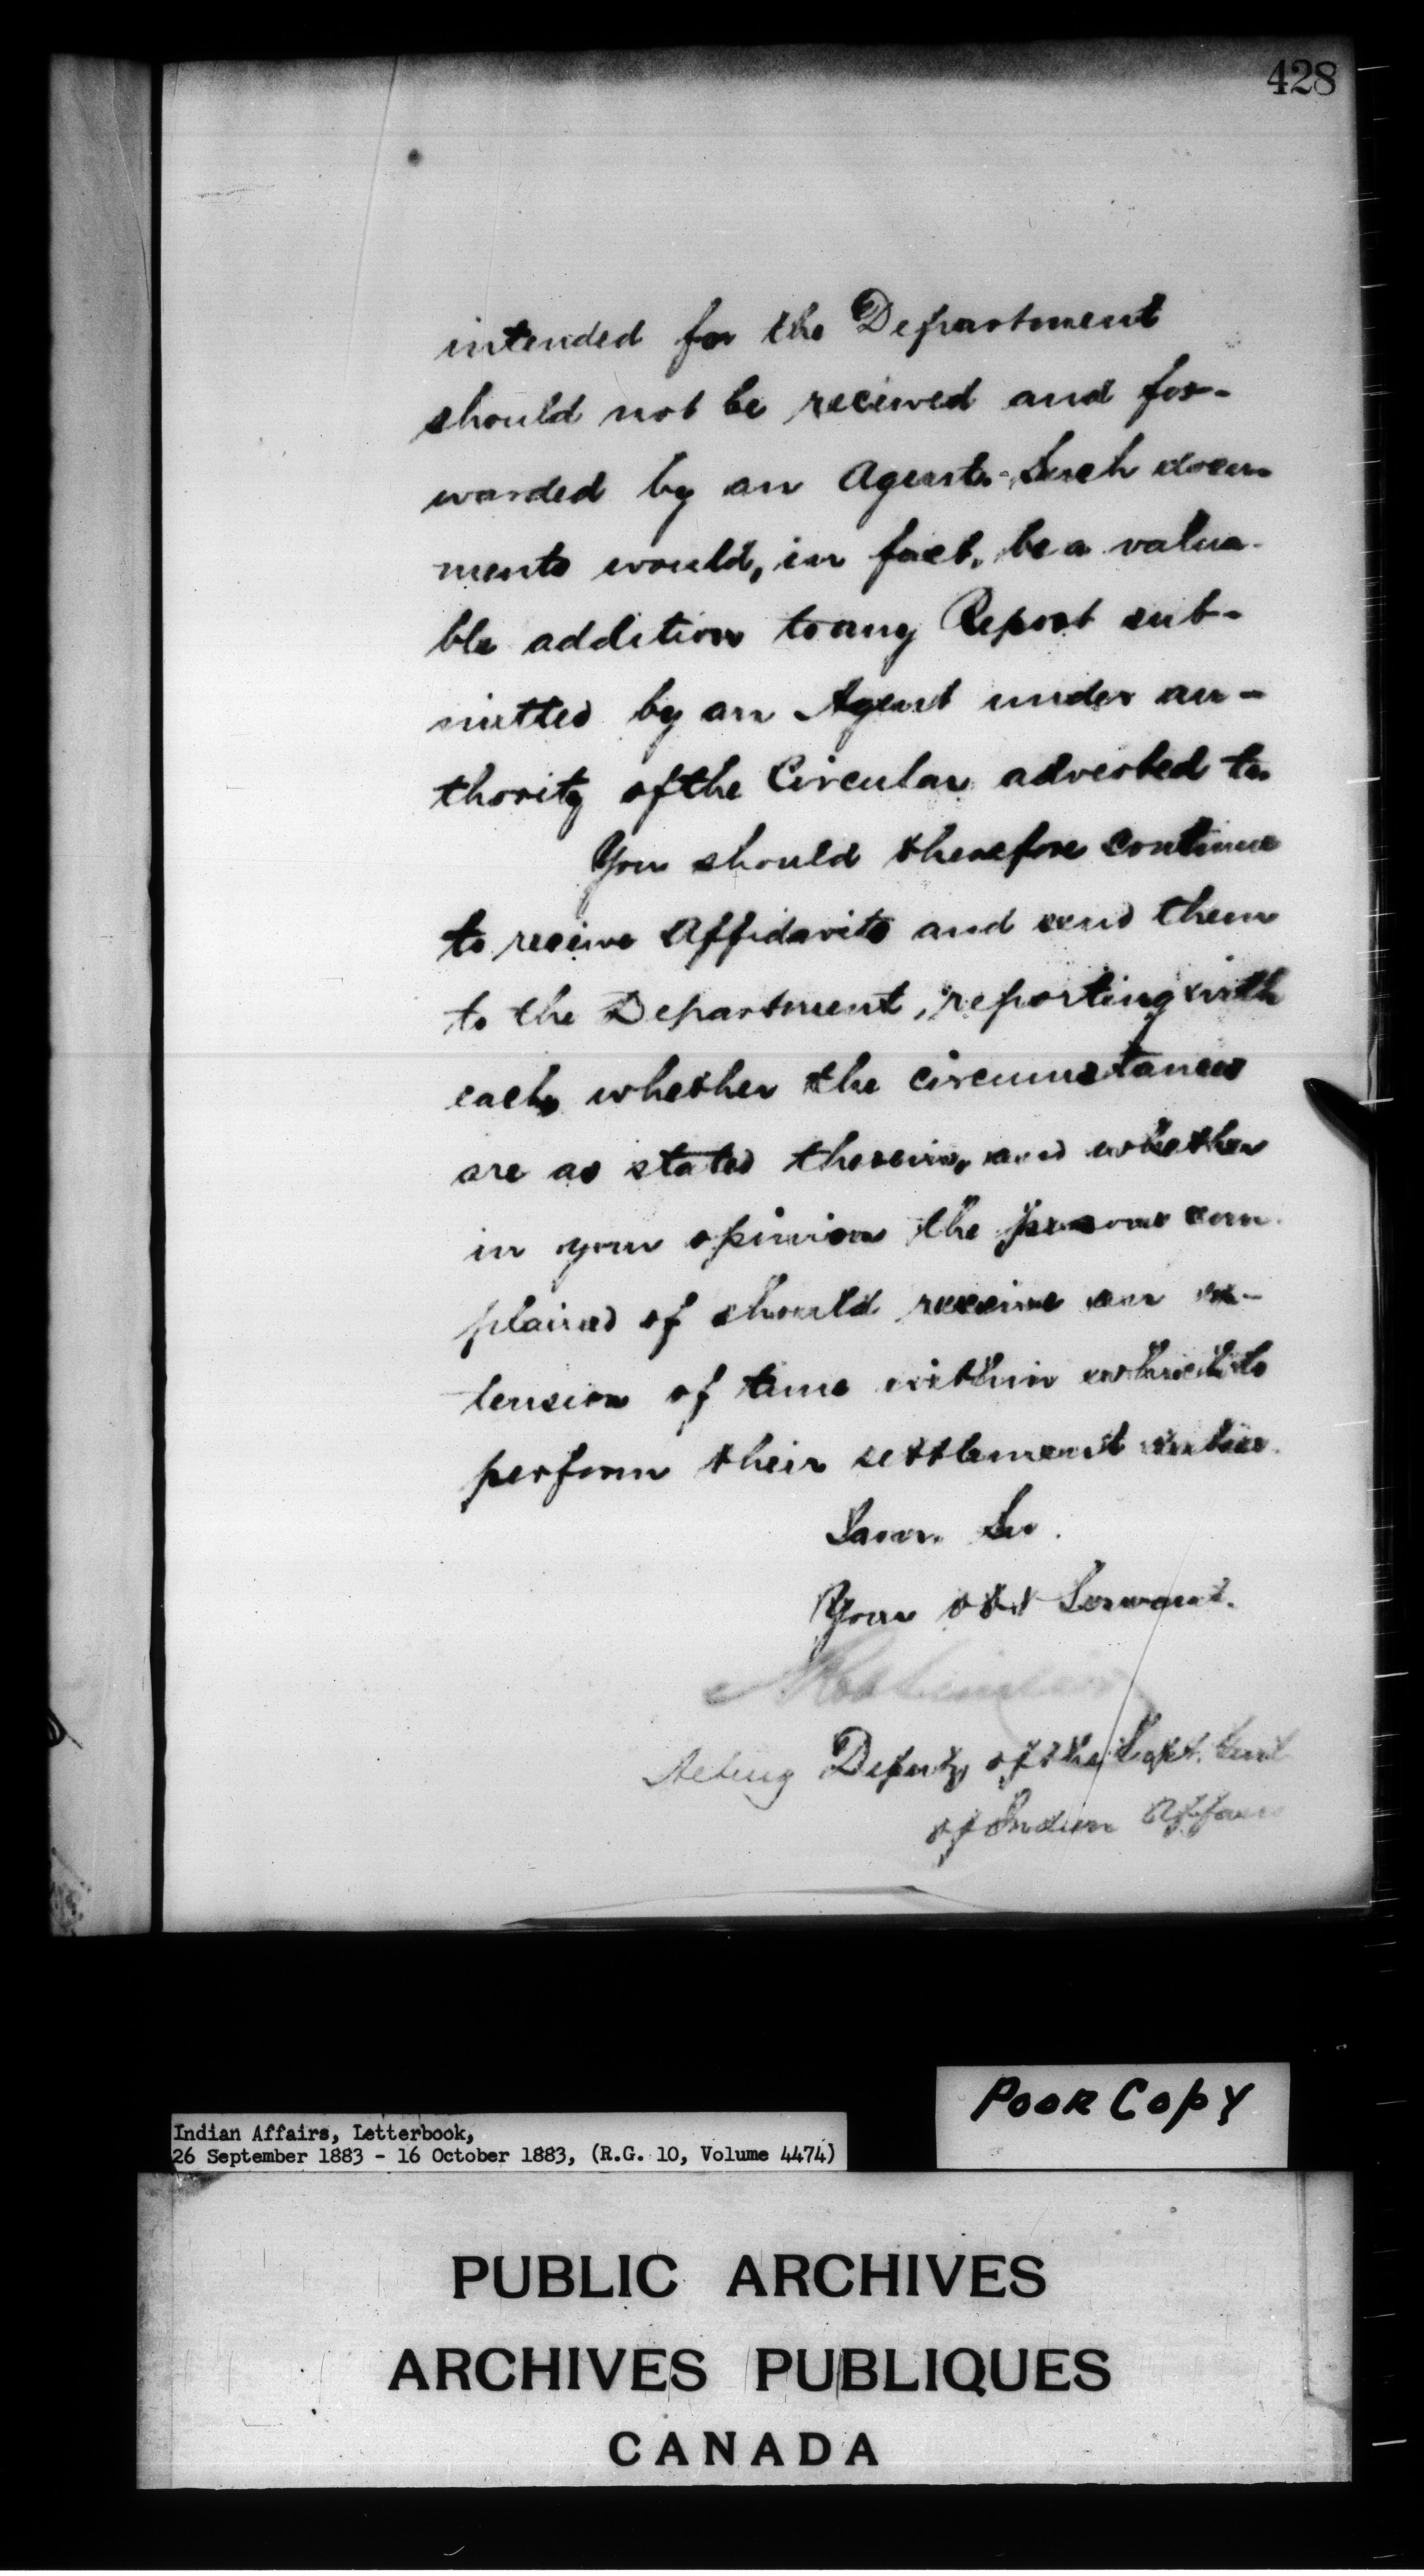 428
intended for the Department
should not be received and for-
warded by an Agent. Such docu-
ments would, in fact, be a valua-
ble addition to any Report sub-
mitted by an Agent under au-
thority of the Circular adverted to.
You should therefore continue
to receive Affidavits and send them
to the Department, reporting with
each, whether the circumstances
are as stated therein, and whether
in your opinion the persons com-
plained of should receive an ex-
tension of time within which to
perform their settlement duties.
I am, Sir.
Your obt Servant.
Acting Deputy of the Supt. Genl
of Indian Affairs
POOR COPY
Indian Affairs, Letterbook,
26 September 1883 - 16 October 1883, (R.G. 10, Volume 4474)
PUBLIC ARCHIVES
ARCHIVES PUBLIQUES
CANADA